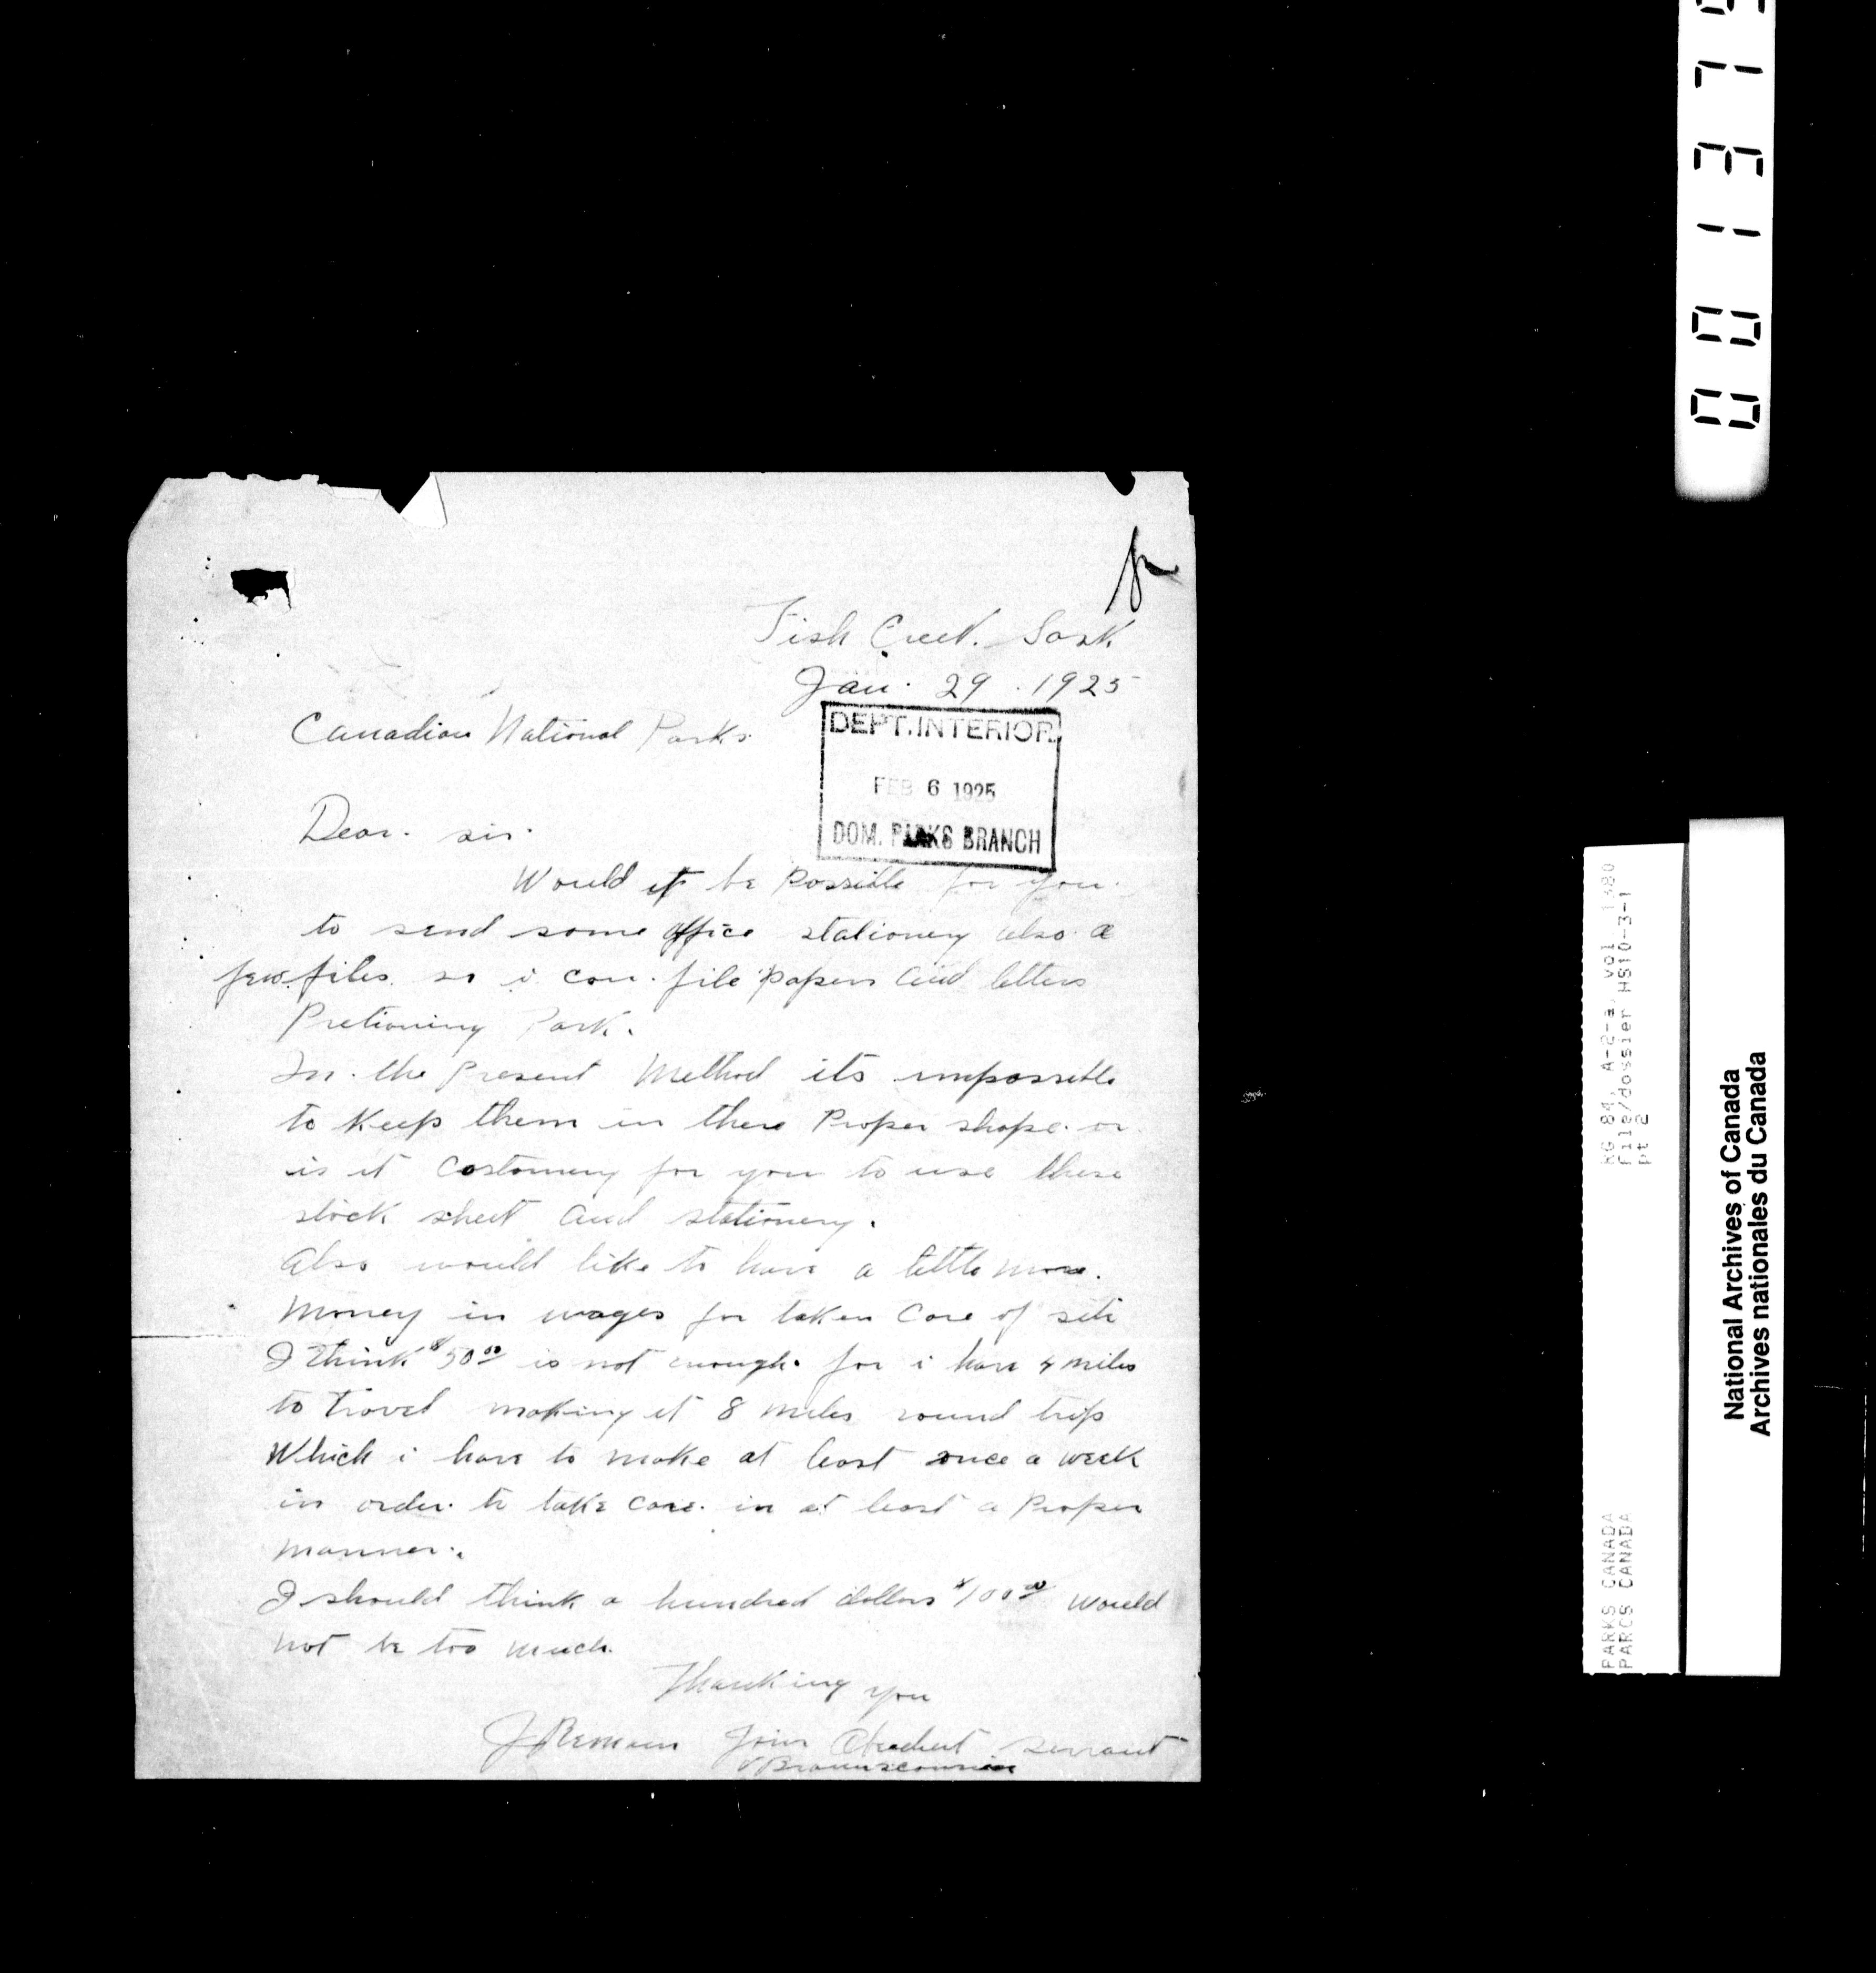 Fish Creek. Sask
Jan. 29. 1925
Canadian National Parks.
DEPT. INTERIOR
FEB 6 1925
DOM. PARKS BRANCH
Dear. sir.
Would it be Possible for you.
to send some office stationery also a
few. files. so i can. file papers and letters
Pretioning Park.
In the Present Method its impossible
to keep them in there Proper shape. or
is it Costomery for you to use these
stock sheet and stationery.
Also would like to have a little more.
Money in wages for taken Care of site
I think $50.00 is not enough. for i have 4 miles
to travel making it 8 miles round trip
Which i have to make at least once a week
in order. to take care. in at least a Proper
manner.
I should think a hundred dollars $100.00 would
not be too much.
Thanking you
Your Obedient servant
001375
National Archives of Canada
Archives nationales du Canada
RG 84, A-2-a, vol 1380
File/dossier HS10-3-1
pt 2
PARKS CANADA
PARCS CANADA